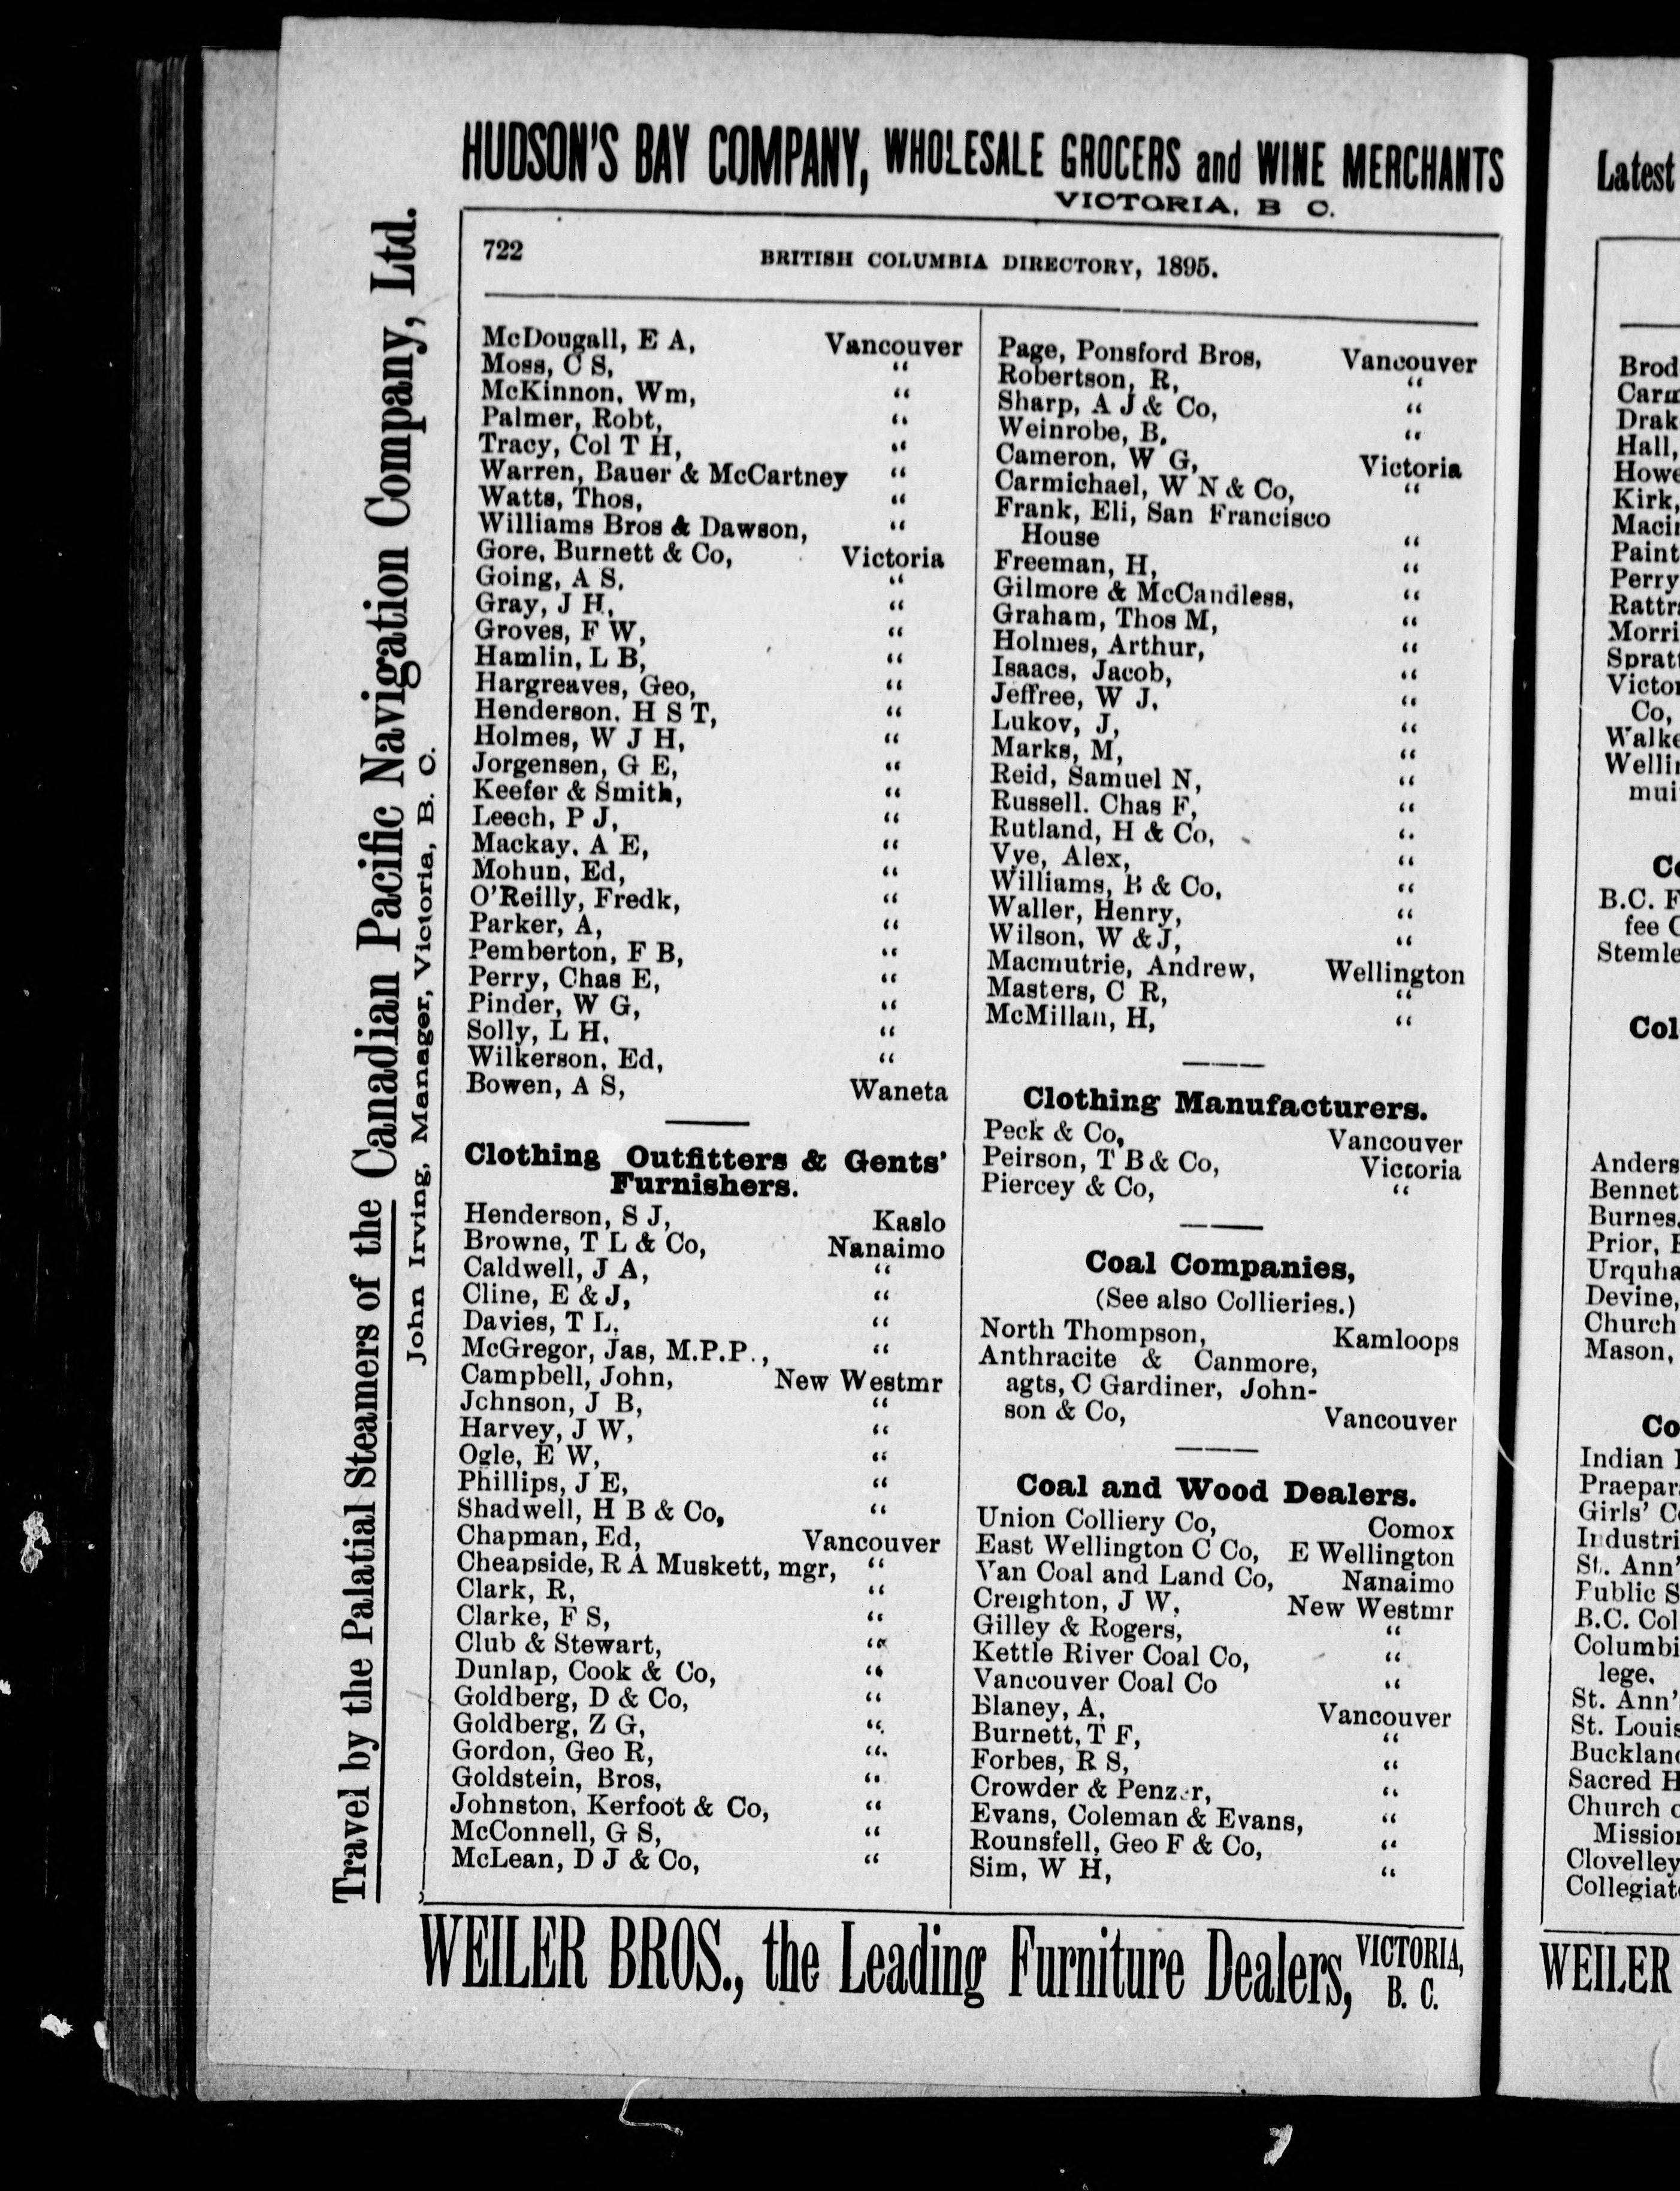 HUDSON'S BAY COMPANY, WHOLESALE GROCERS and WINE MERCHANTS
VICTORIA, B C.
Travel by the Palatial Steamers of the Canadian Pacific Navigation Company, Ltd.
John Irving, Manager, Victoria, B. C.
722 BRITISH COLUMBIA DIRECTORY, 1895.
McDougall, E A, Vancouver
Moss, C S, "
McKinnon, Wm, "
Palmer, Robt, "
Tracy, Col T H, "
Warren, Bauer & McCartney "
Watts, Thos, "
Williams Bros & Dawson, "
Gore, Burnett & Co, Victoria
Going, A S, "
Gray, J H, "
Groves, F W, "
Hamlin, L B, "
Hargreaves, Geo, "
Henderson. H S T, "
Holmes, W J H, "
Jorgensen, G E, "
Keefer & Smith, "
Leech, P J, "
Mackay. A E, "
Mohun, Ed, "
O'Reilly, Fredk, "
Parker, A, "
Pemberton, F B, "
Perry, Chas E, "
Pinder, W G, "
Solly, L H, "
Wilkerson, Ed, "
Bowen, A S, Waneta
Clothing Outfitters & Gents'
Furnishers.
Henderson, S J, Kaslo
Browne, T L & Co, Nanaimo
Caldwell, J A, "
Cline, E & J, "
Davies, T L. "
McGregor, Jas, M.P.P., "
Campbell, John, New Westmr
Jchnson, J B, "
Harvey, J W, "
Ogle, E W, "
Phillips, J E, "
Shadwell, H B & Co, "
Chapman, Ed, Vancouver
Cheapside, R A Muskett, mgr, "
Clark, R, "
Clarke, F S, "
Club & Stewart, "
Dunlap, Cook & Co, "
Goldberg, D & Co, "
Goldberg, Z G, "
Gordon, Geo R, "
Goldstein, Bros, "
Johnston, Kerfoot & Co, "
McConnell, G S, "
McLean, D J & Co, "
Page, Ponsford Bros, Vancouver
Robertson, R, "
Sharp, A J & Co, "
Weinrobe, B, "
Cameron, W G, Victoria
Carmichael, W N & Co, "
Frank, Eli, San Francisco
House "
Freeman, H, "
Gilmore & McCandless, "
Graham, Thos M, "
Holmes, Arthur, "
Isaacs, Jacob, "
Jeffree, W J, "
Lukov, J, "
Marks, M, "
Reid, Samuel N, "
Russell. Chas F, "
Rutland, H & Co, "
Vye, Alex, "
Williams, B & Co, "
Waller, Henry, "
Wilson, W & J, "
Macmutrie, Andrew, Wellington
Masters, C R, "
McMillan, H, "
Clothing Manufacturers.
Peck & Co, Vancouver
Peirson, T B & Co, Victoria
Piercey & Co, "
Coal Companies,
(See also Collieries.)
North Thompson, Kamloops
Anthracite & Canmore,
agts, C Gardiner, John-
son & Co, Vancouver
Coal and Wood Dealers.
Union Colliery Co, Comox
East Wellington C Co, E Wellington
Van Coal and Land Co, Nanaimo
Creighton, J W, New Westmr
Gilley & Rogers, "
Kettle River Coal Co, "
Vancouver Coal Co "
Blaney, A, Vancouver
Burnett, T F, "
Forbes, R S, "
Crowder & Penzer, "
Evans, Coleman & Evans, "
Rounsfell, Geo F & Co, "
Sim, W H, "
WEILER BROS., the Leading Furniture Dealers, VICTORIA,
B. C.
Latest
Brod
Carm
Drak
Hall,
Howe
Kirk,
Macin
Paint
Perry
Rattr
Morri
Spratt
Victor
Co,
Walke
Wellin
mui
B.C. F
fee C
Stemle
Col
Anders
Bennet
Burnes,
Prior, E
Urquha
Devine,
Church
Mason,
Co
Indian
Praepar
Girls' C
Industri
St. Ann'
Public S
B.C. Col
Columbi
lege,
St. Ann'
St. Louis
Buckland
Sacred H
Church o
Mission
Clovelley
Collegiat
WEILER